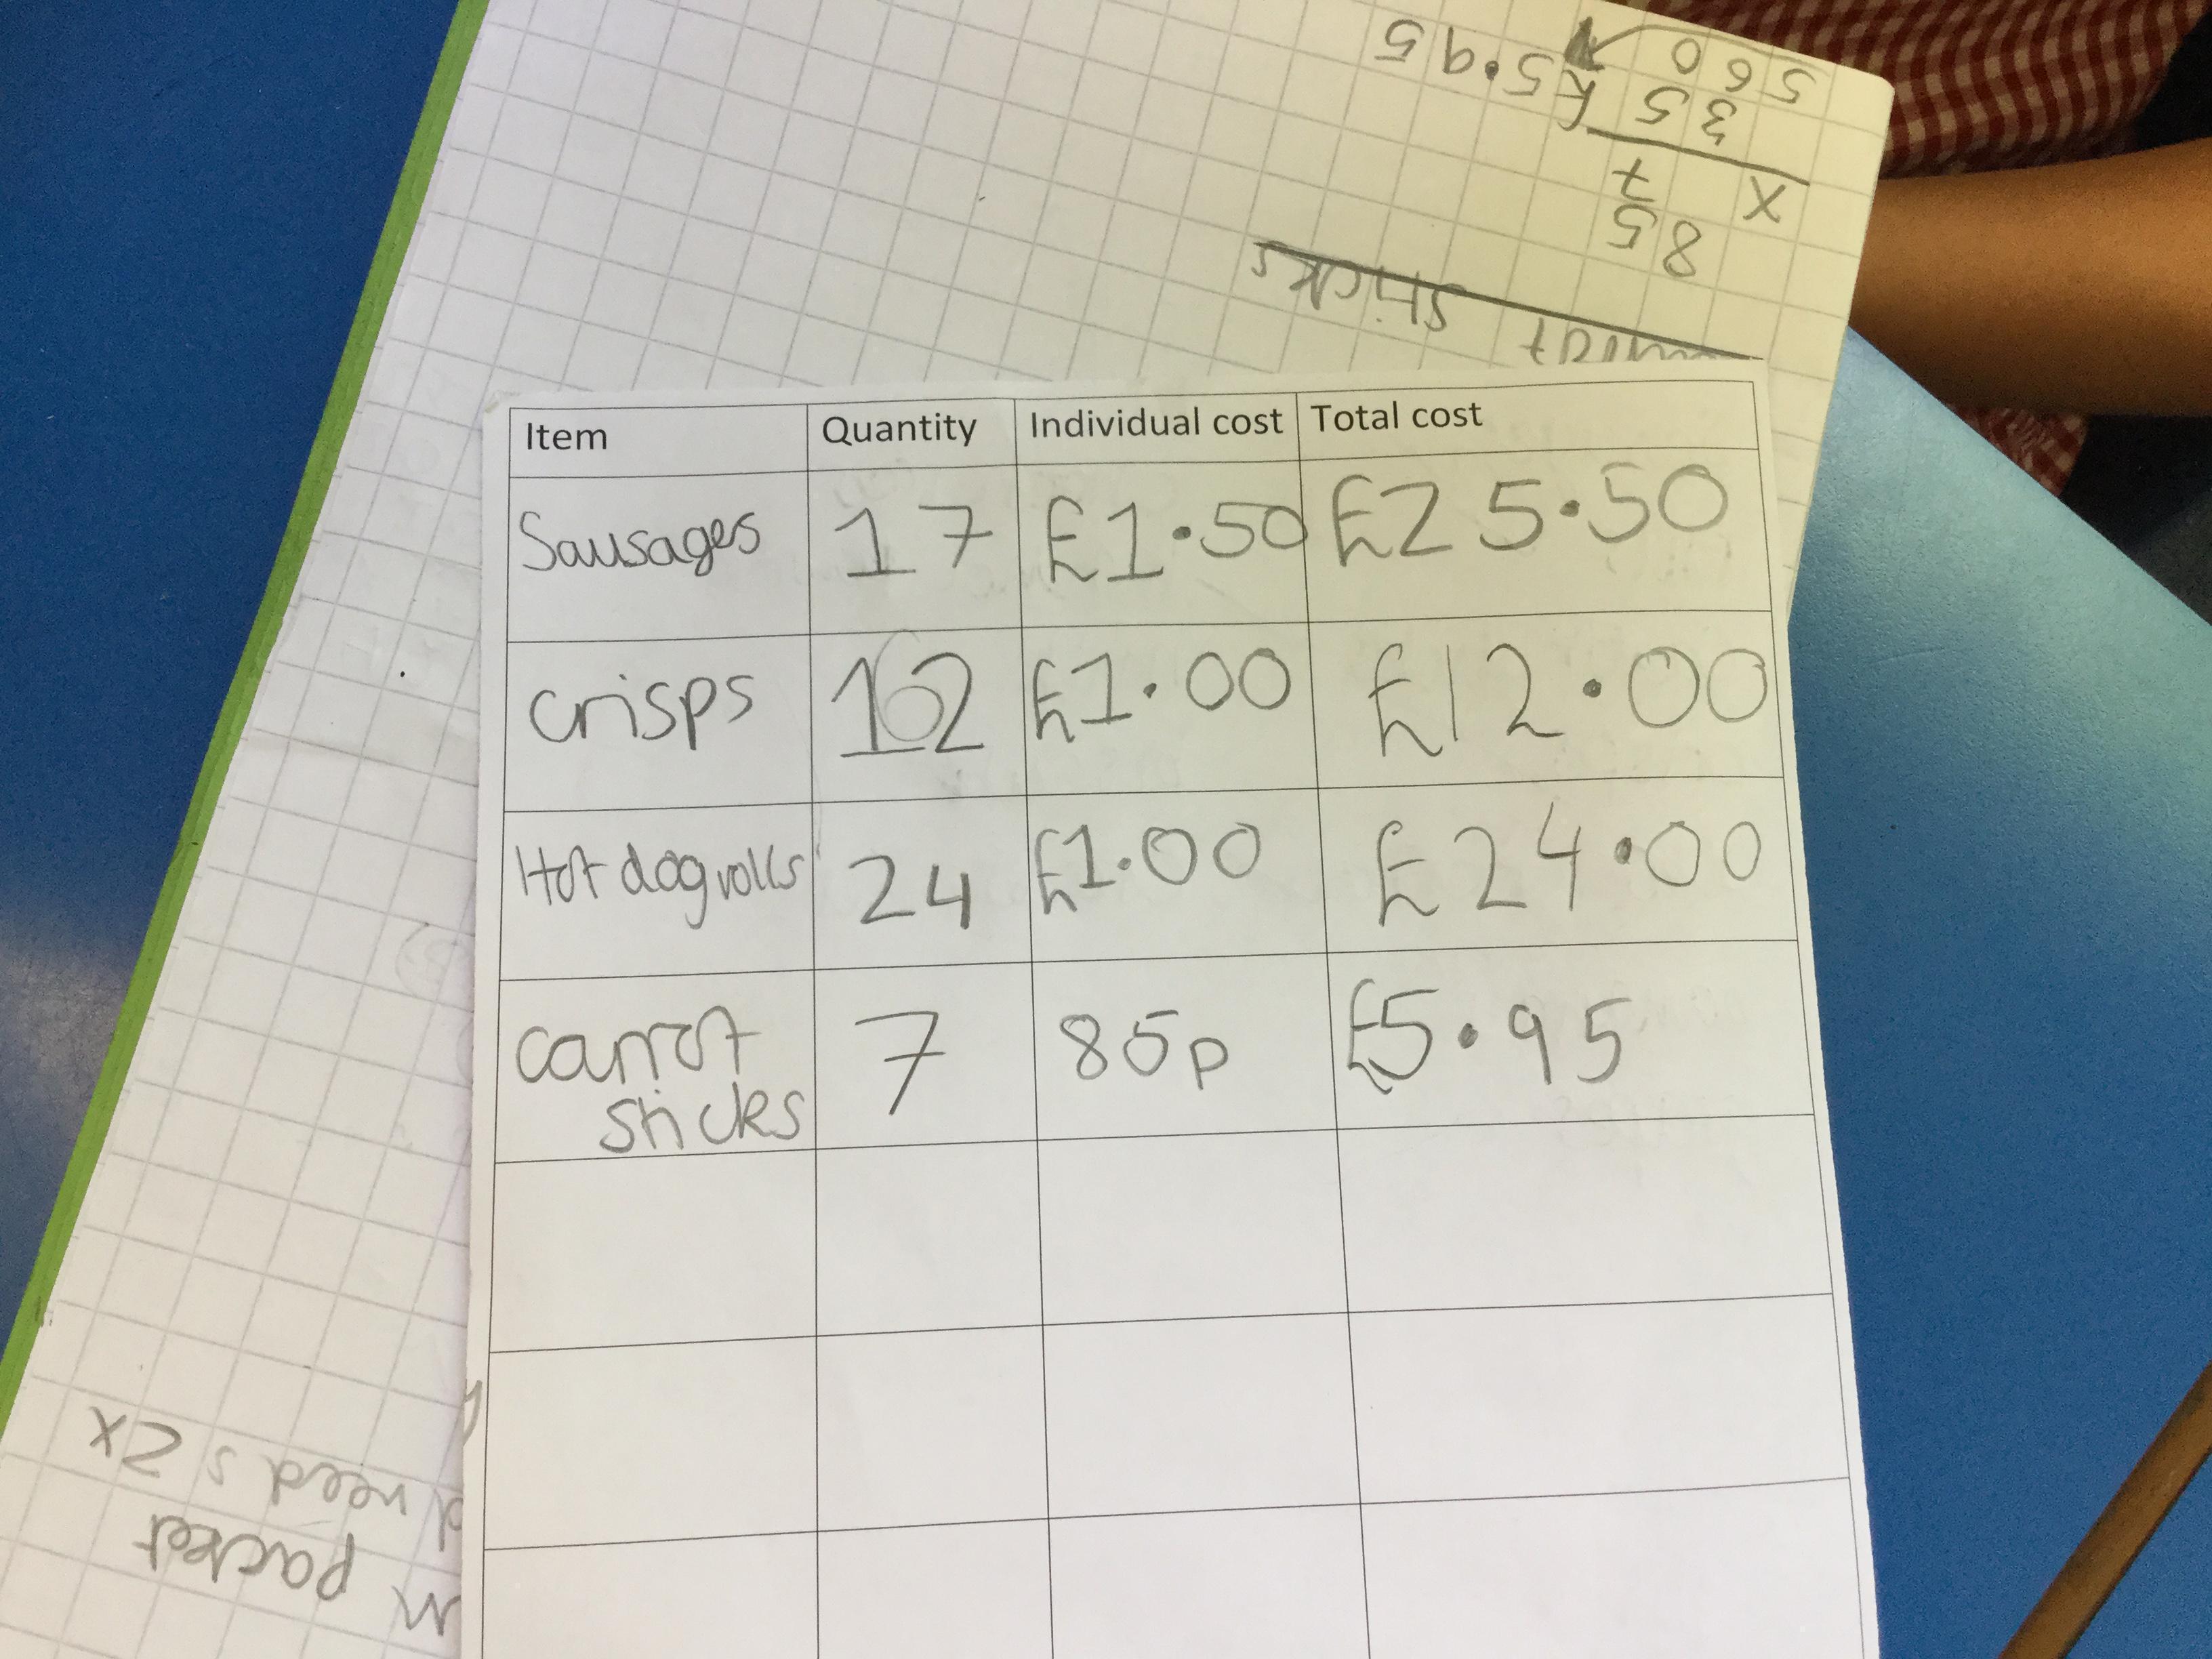 £5.95
560
35
X 7
85
meat sticks
Item Quantity Individual cost Total cost
Sausages 17 £1.50 £25.50
crisps 12 £1.00 £12.00
Hot dog rolls 24 £1.00 £24.00
carrot 7 85p £5.95
sticks
need s 2x
packet